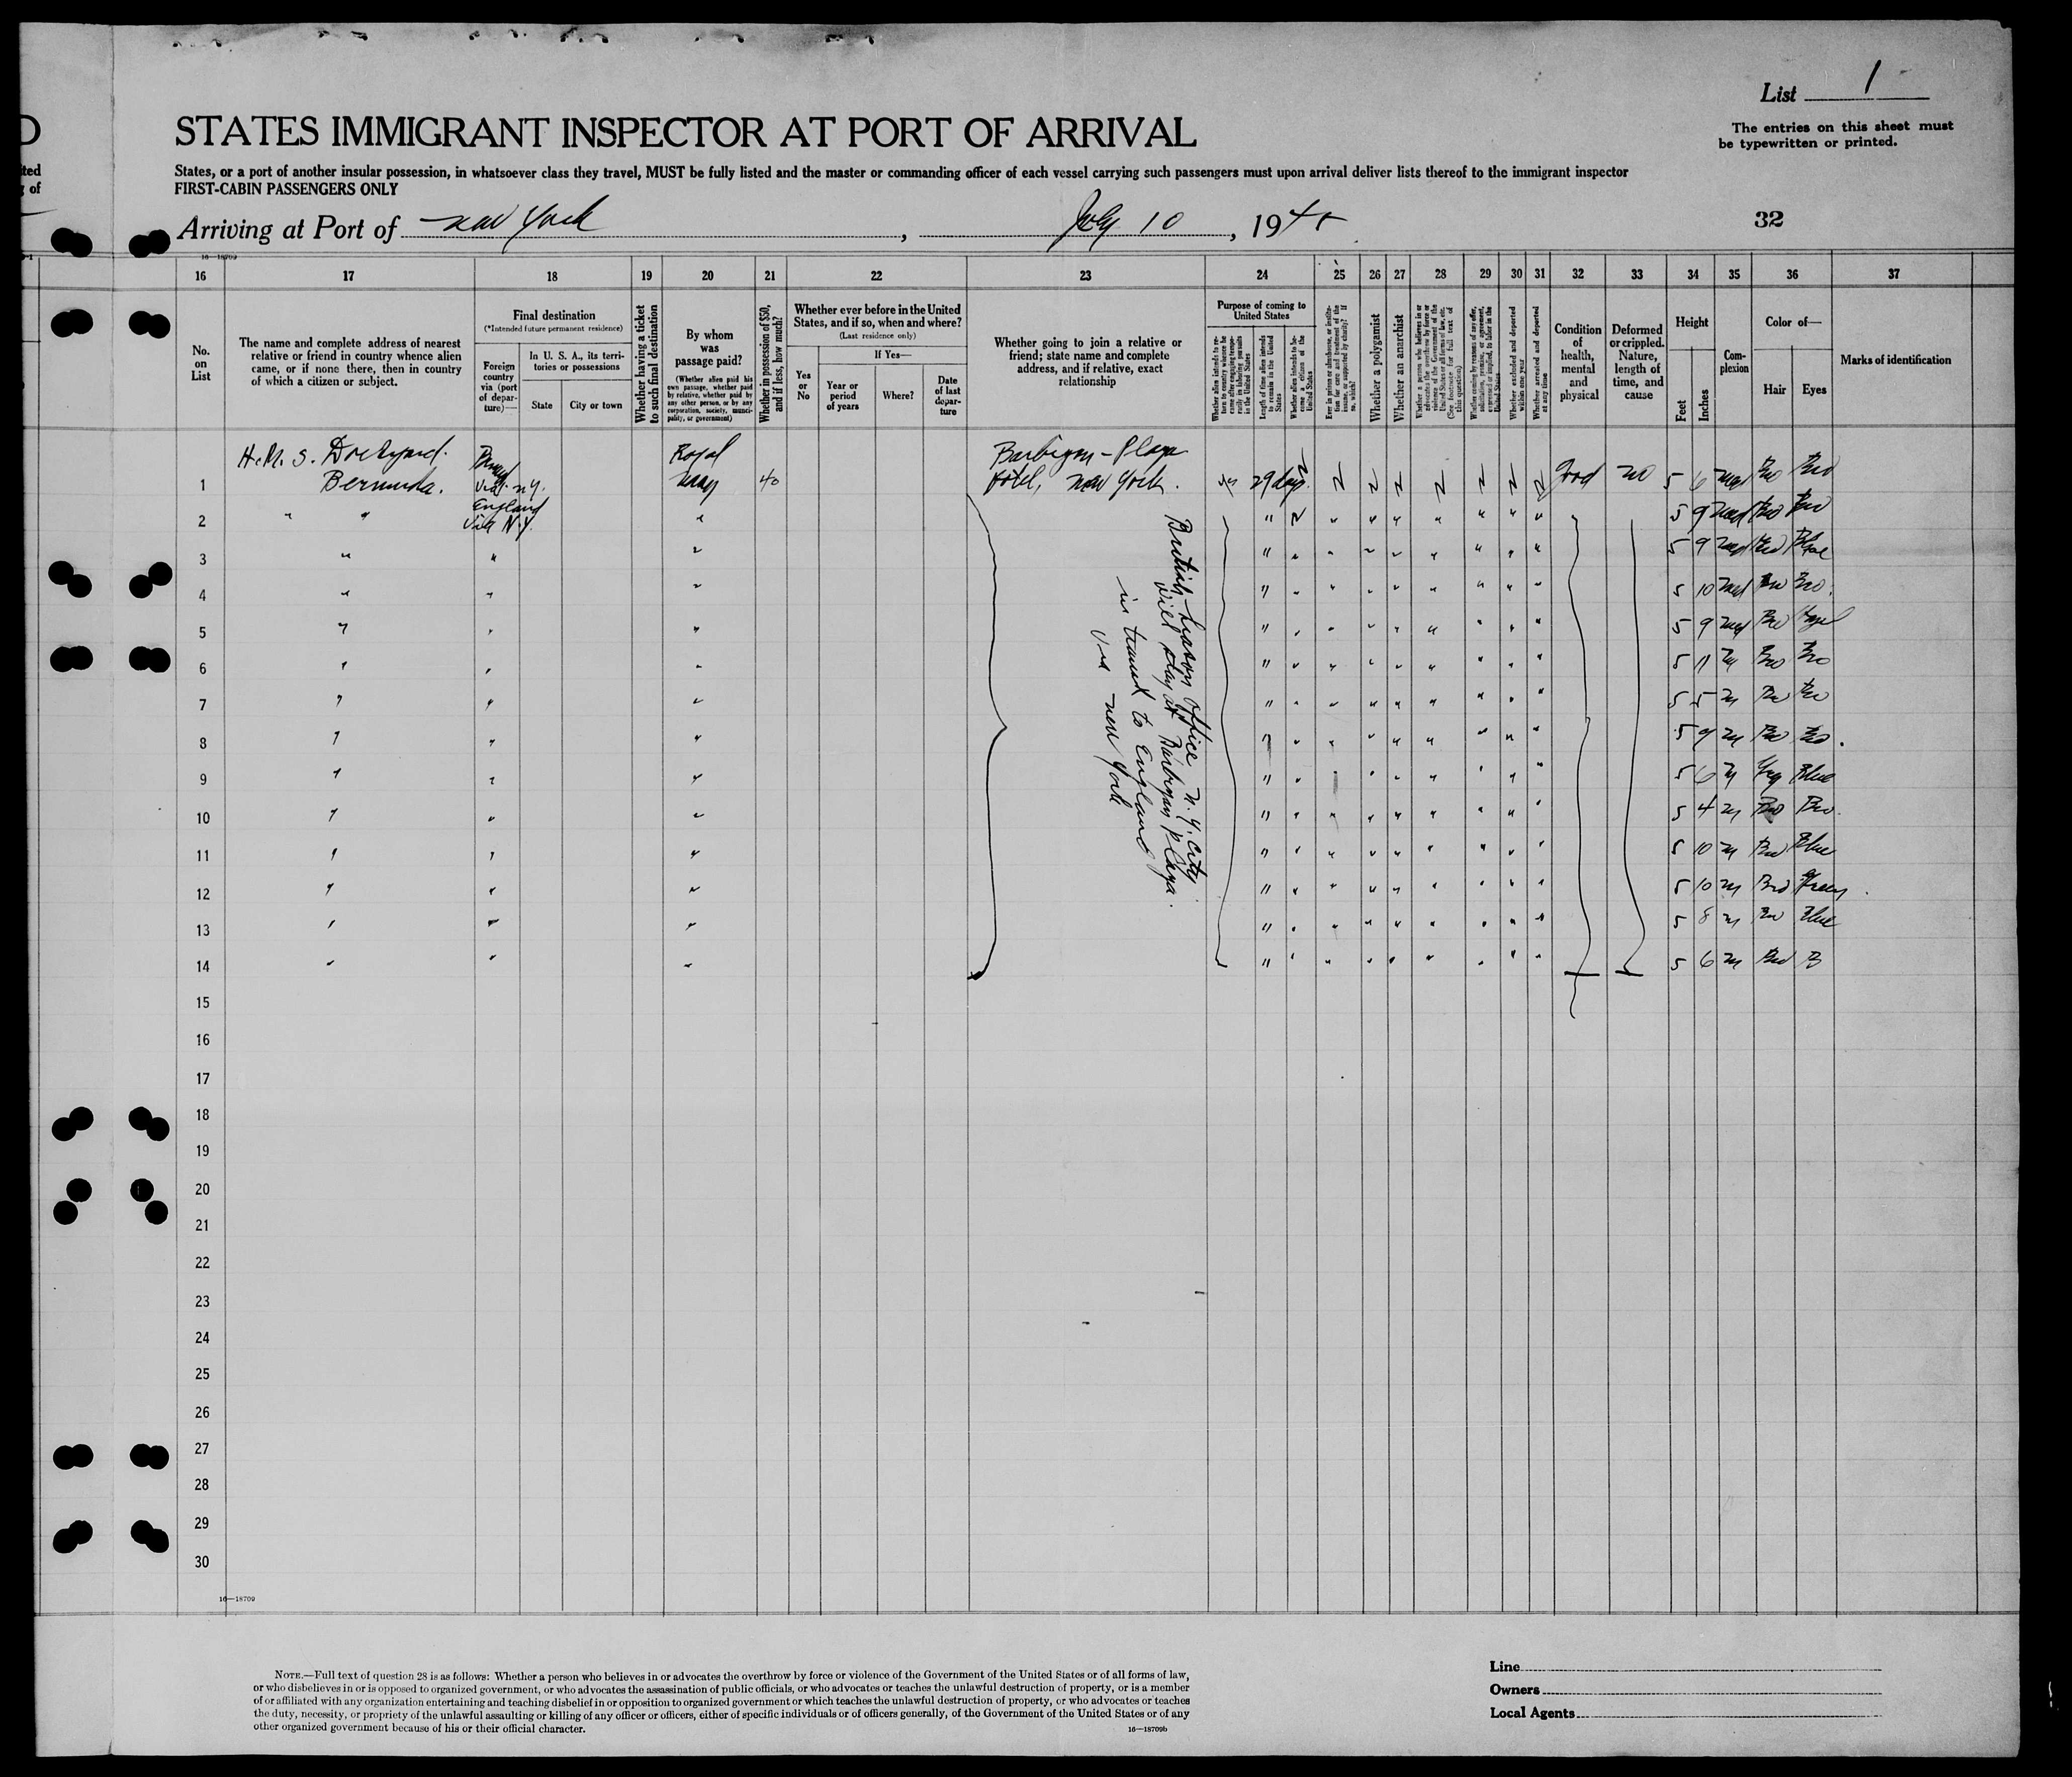 List 1
The entries on this sheet must
be typewritten or printed.
D
STATES IMMIGRANT INSPECTOR AT PORT OF ARRIVAL
ted
of
States, or a port of another insular possession, in whatsoever class they travel, MUST be fully listed and the master or commanding officer of each vessel carrying such passengers must upon arrival deliver lists thereof to the immigrant inspector
FIRST-CABIN PASSENGERS ONLY
Arriving at Port of New York, July 10, 19
32
16—18709
16 17 18 19 20 21 22 23 24 25 26 27 28 29 30 31 32 33 34 35 36 37
No.
on
List
The name and complete address of nearest
relative or friend in country whence alien
came, or if none there, then in country
of which a citizen or subject.
Final destination
(*Intended future permanent residence)
Foreign
country
via (port
of depar-
ture)—
In U. S. A., its terri-
tories or possessions
State
City or town
Whether having a ticket
to such final destination
By whom
was
passage paid?
(Whether alien paid his
own passage, whether paid
by relative, whether paid by
any other person, or by any
corporation, society, munici-
pality, or government)
Whether in possession of $50,
and if less, how much?
Whether ever before in the United
States, and if so, when and where?
(Last residence only)
Yes
or
No
If Yes—
Year or
period
of years
Where?
Date
of last
depar-
ture
Whether going to join a relative or
friend; state name and complete
address, and if relative, exact
relationship
Purpose of coming to
United States
Whether alien intends to re-
turn to country whence he
came after engaging tempo-
rarily in laboring pursuits
in the United States
Length of time alien intends
to remain in the United
States
Whether alien intends to be-
come a citizen of the
United States
Ever in prison or almshouse, or institu-
tion for care and treatment of the
insane, or supported by charity? If
so, which?
Whether a polygamist
Whether an anarchist
Whether a person who believes in or
advocates the overthrow by force or
violence of the Government of the
United States or all forms of law, etc.
(See footnote for full text of
this question)
Whether coming by reason of any offer,
solicitation, promise, or agreement,
expressed or implied, to labor in the
United States
Whether excluded and deported
within one year
Whether arrested and deported
at any time
Condition
of
health,
mental
and
physical
Deformed
or crippled.
Nature,
length of
time, and
cause
Height
Feet
Inches
Com-
plexion
Color of—
Hair
Eyes
Marks of identification
H.M.S. Dockyard. Royal Barbizon-Plaza
1 Bermuda. via N.Y. Navy 40 Hotel, New York. yes 29 days. good no 5 6 med Bro Bro
England
2 " " via N.Y. " " 5 9 med Bro Bro
3 " " " " 5 9 med
4 " " " " 5 10 med Bro Bro.
5 " " " " 5 9 med Bro Hazel
6 " " " " 5 11 M Bro Bro
7 " " " " 5 5 M Bro Bro
8 " " " " 5 9 M Bro Bro.
9 " " " " 5 6 M Gry Blue
10 " " " " 5 4 M Bro Bro.
11 " " " " 5 10 M Bro Blue
12 " " " " 5 10 M Bro
13 " " " " 5 8 M Bro Blue
14 " " " " 5 6 M Bro B
British Liason Office N.Y. City
will stay at Barbizon Plaza.
in transit to England
via New York
15
16
17
18
19
20
21
22
23
24
25
26
27
28
29
30
16—18709
NOTE.—Full text of question 28 is as follows: Whether a person who believes in or advocates the overthrow by force or violence of the Government of the United States or of all forms of law,
or who disbelieves in or is opposed to organized government, or who advocates the assassination of public officials, or who advocates or teaches the unlawful destruction of property, or is a member
of or affiliated with any organization entertaining and teaching disbelief in or opposition to organized government or which teaches the unlawful destruction of property, or who advocates or teaches
the duty, necessity, or propriety of the unlawful assaulting or killing of any officer or officers, either of specific individuals or of officers generally, of the Government of the United States or of any
other organized government because of his or their official character.
16—18709b
Line
Owners
Local Agents